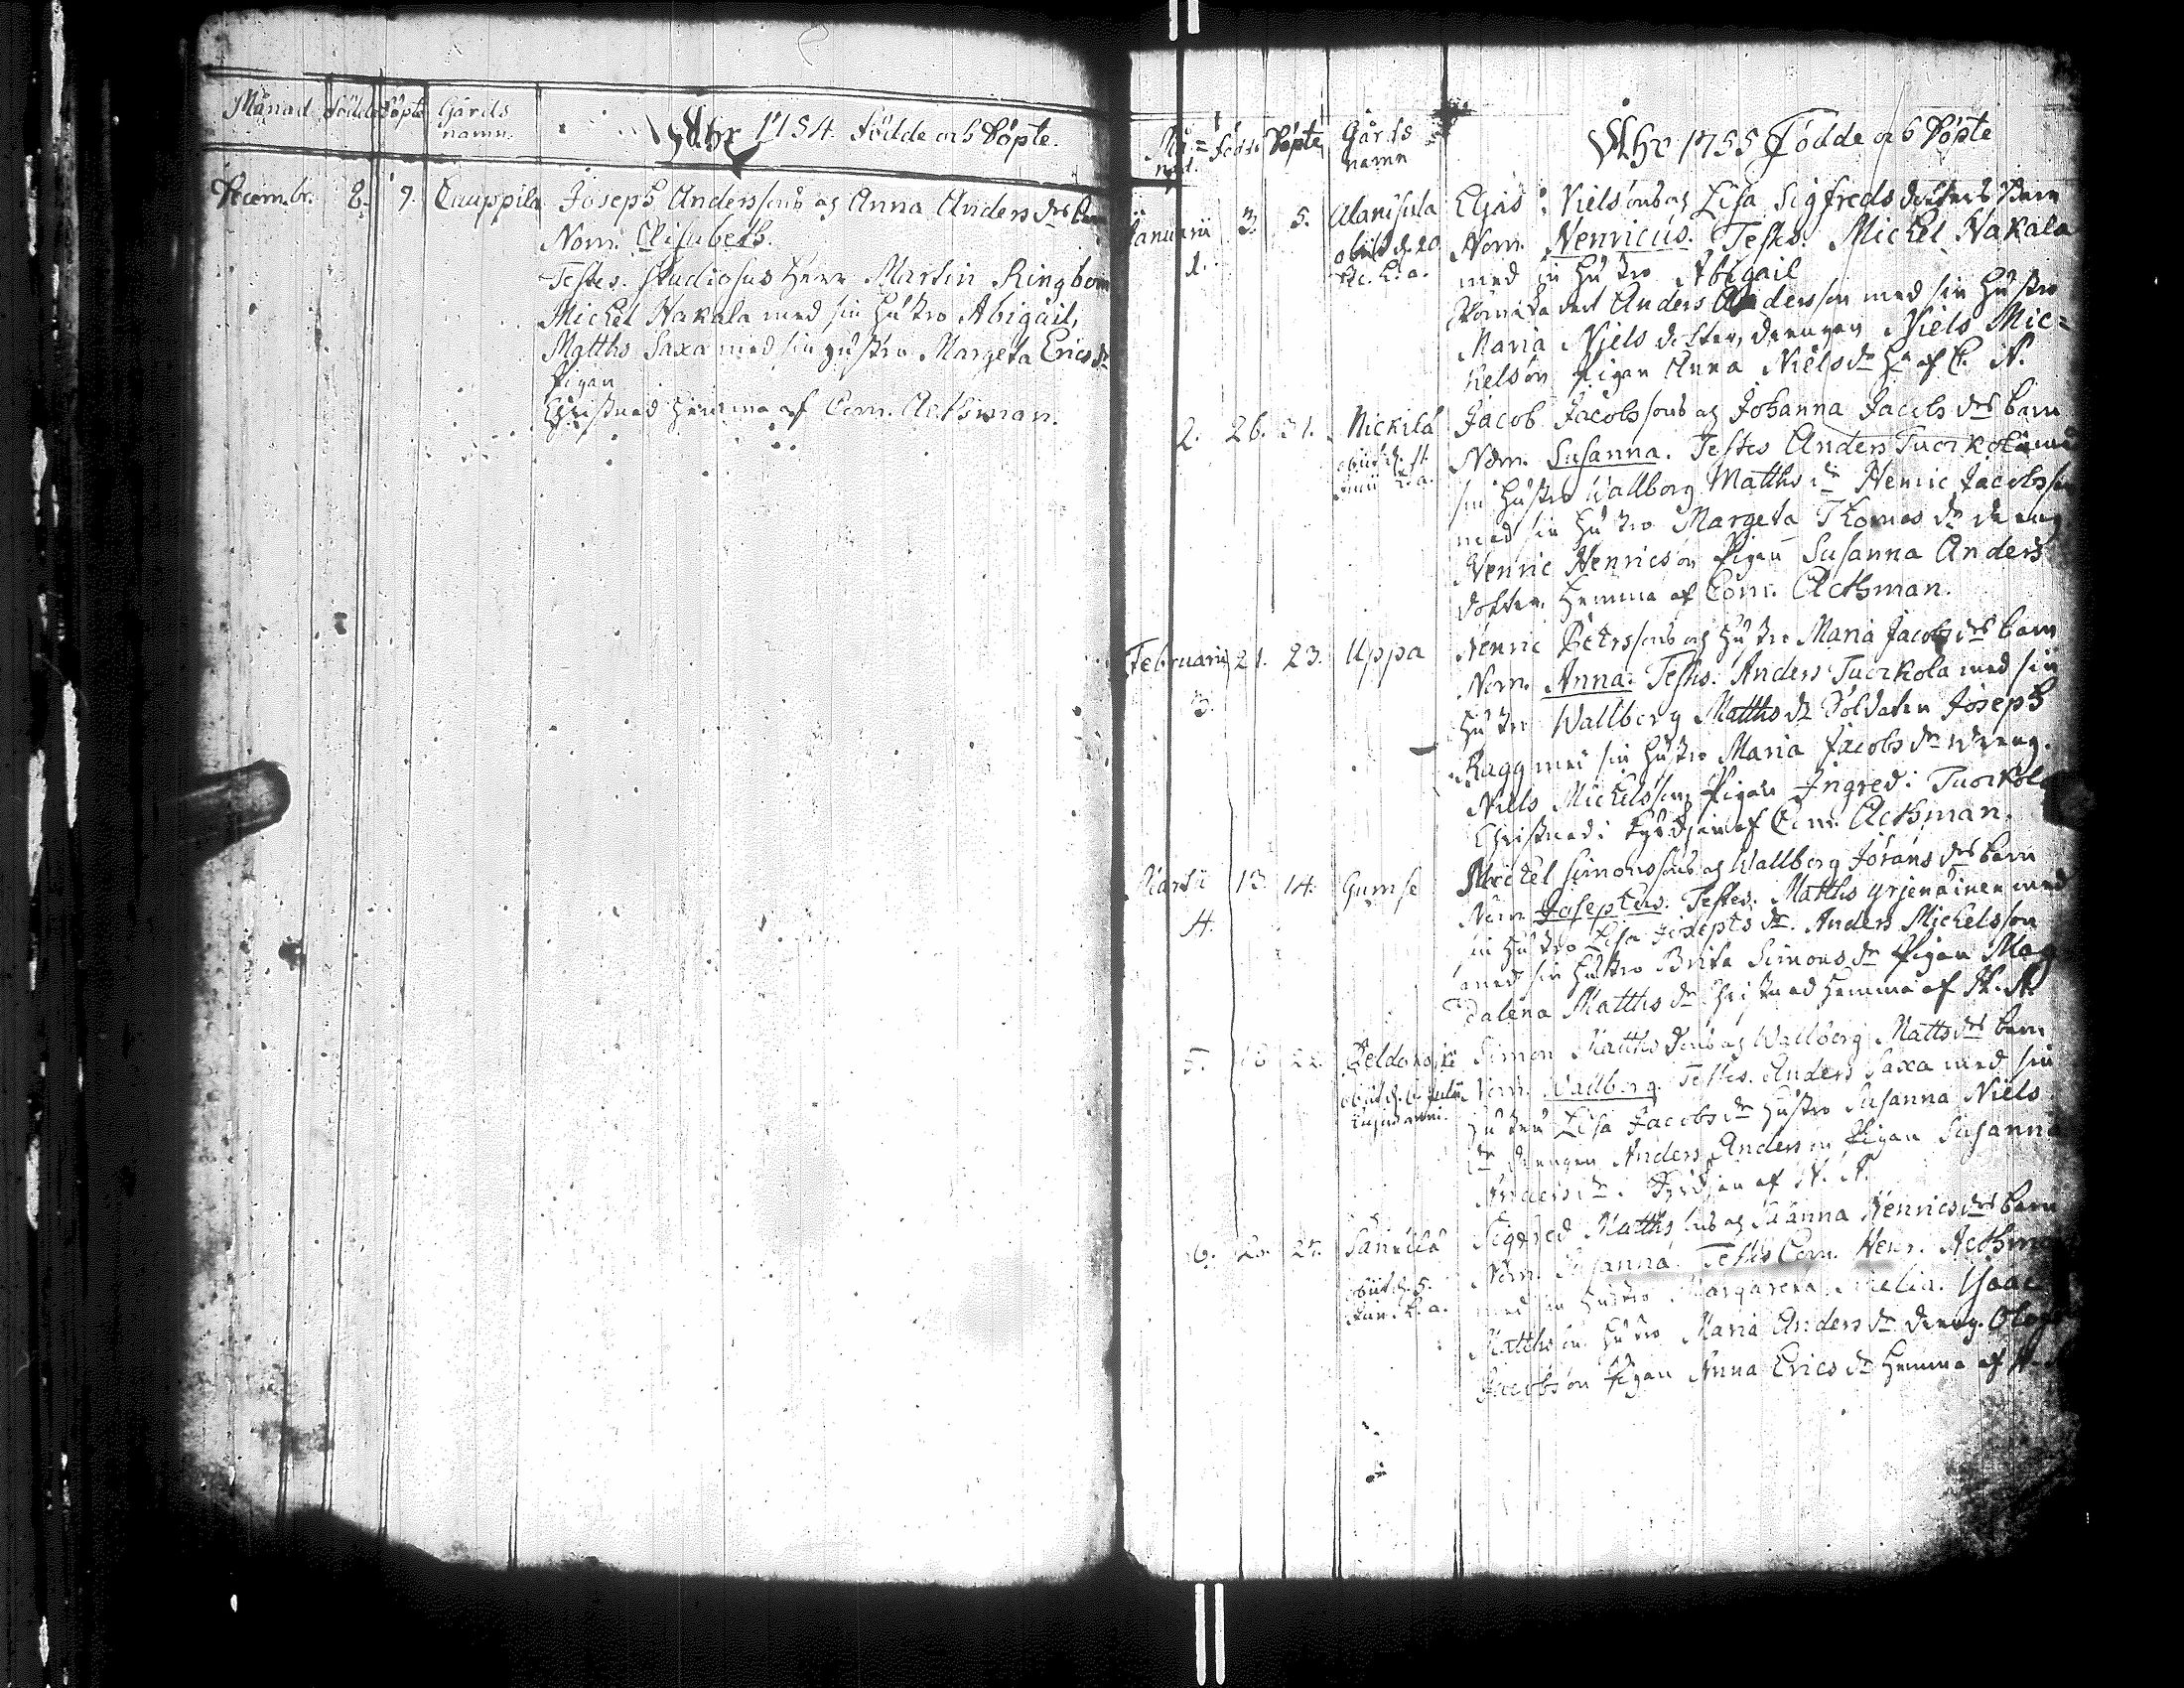 Månad födde döpte Gårds namn. Åhr 1754. födde och döpte.
Decembr. 8. 9. Cauppila Joseph Anderssons och Anna Anders drs barn
Nom. Elisabeth.
Testes. Studiosus Herr Martin Ringbom
Michel Hakala med sin hustro Abigail,
Matths Saxa med sin hustro Margeta Erics dr
Pigan
Christnad hemma af Com. Acthman.
Må=nad. födde Döpte Gårds namn Åhr 1755 Födde och Döpte
Januarii 3. 5. Alanisula Elias Nielsons och Lisa Sigfreds dotters Barn
1. obiit d. 20 Nom. Henricus. Testes. Michel Hakala
h. a. med sin hustro Abigail
Anders Andersson med sin hustro
Maria Niels dotter, drengen Niels Mic=
kelson Pigan Anna Niels dr af C. N.
2. 26. 31. Nickilä Jacob Jacobssons och Johanna Jacobs drs barn
obiit d. Nom. Susanna. Testes Anders Tuorkola med
h. a. sin hustro Wallborg Matths dr Henric Jacobsson
med sin hustro Margeta Thomas dr dreng
Henric Henricson Pigan Susanna Anders
dotter. Hemma af Com. Acthman.
Februarii 21. 23. Uppa Henric Petrssons och hustro Maria Jacobs drs barn
3. Nom. Anna. Testes. Anders Tuorkola med sin
hustro Wallborg Matths dr Soldaten Joseph
Ragg med sin hustro Maria Jacobs dr dreng.
Niels Michelsson Pigan Ingred: Tuorkola
Christnad i kyrckjan af Com. Acthman.
Martii 13. 14. Gumse Michel Simonssons och Wallborg Jörans drs barn
4. Nom. Josephus. Testes. Matths Yrjenäinen med
sin hustro Lisa Josephs dr. Anders Michelsson
med sin hustro Brita Simons dr Pigan Mag
dalena Matths dr Christnad hemma af N. N.
5. 18 22. Simon Matths sons och Wallborg Matts drs barn
obiit d. 6. Julii Nom. Wallborg. Testes. Anders Saxa med sin
hujus anni. hustru Lisa Jacobs dr hustro Susanna Niels
dr drengen Anders Anderson Pigan Susanna
Anders dr. af N. N.
6. 27. Sigfred Matths sons och Susanna Henrics drs barn
Nom. Susanna. Testes Com. Henr. Acthman
obiit d. 5. med sin hustro Margareta. Isaac
h. a. Matthson hustro Maria Anders dr dreng. Olof
Jacobson Pigan Anna Erics dr hemma af